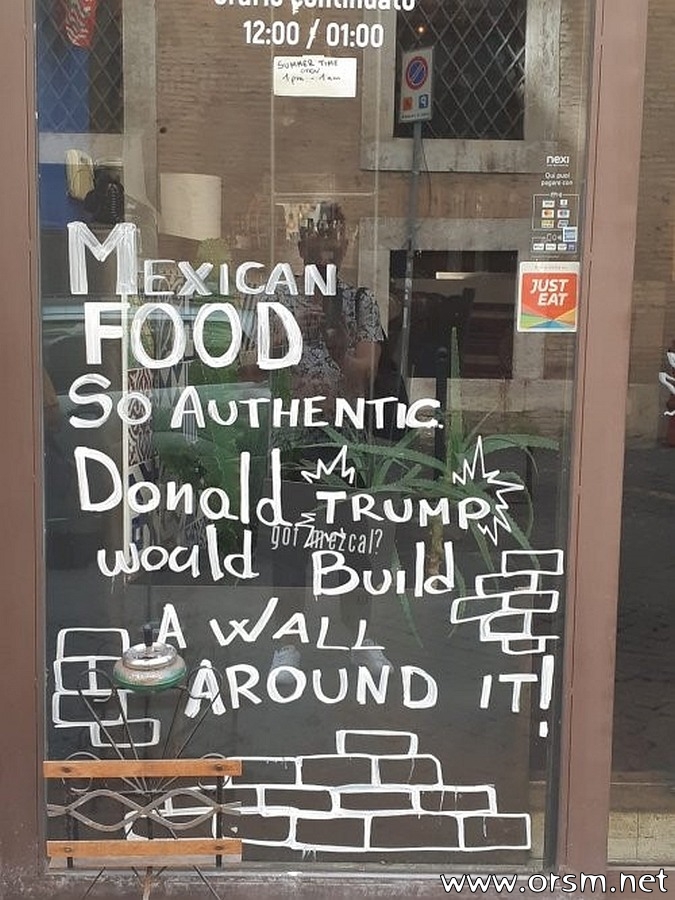 orario continuato
12:00 / 01:00
SUMMER TIME
OPEN
1pm - 1am
nexi
Qui puoi
pagare con
JUST
EAT
MEXICAN
FOOD
SO AUTHENTIC.
Donald TRUMP
got mezcal?
would Build
A WALL
AROUND IT!
www.orsm.net